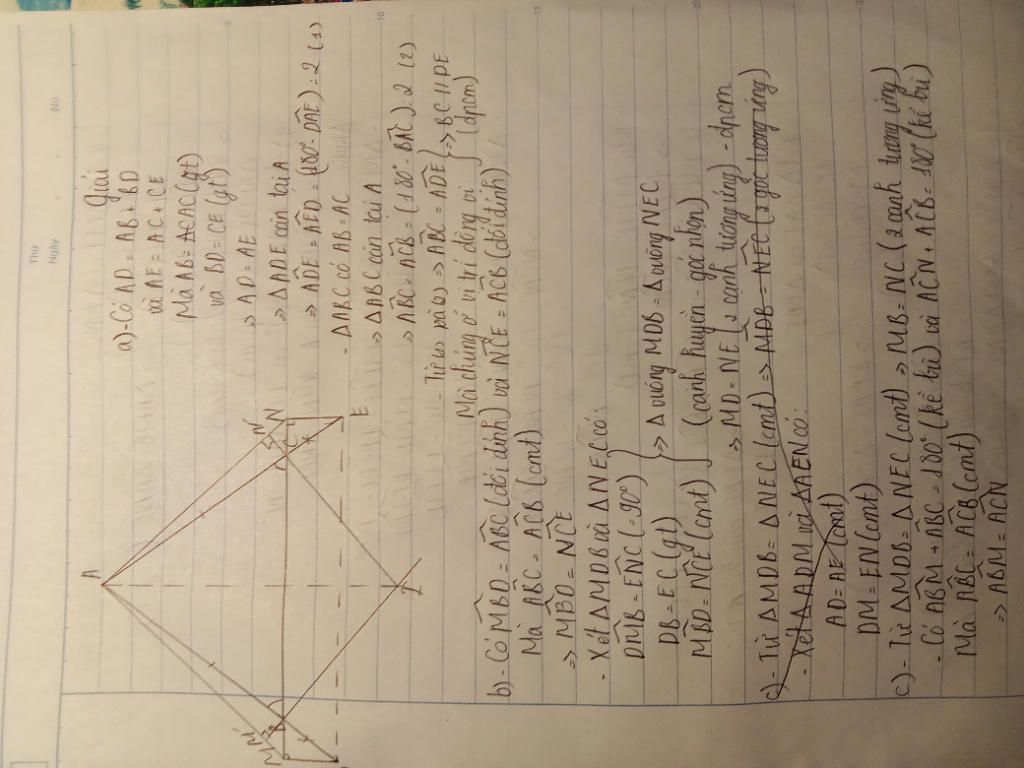 Thứ
Ngày
No
Giải
a)- Có AD = AB + BD
và AE = AC + CE
Mà AB = AC (gt)
và BD = CE (gt)
=> AD = AE
=> ΔADE cân tại A
=> ADE = AED = (180° - DAE) : 2 (1)
- ΔABC có AB = AC
=> ΔABC cân tại A
=> ABC = ACB = (180° - BAC) : 2 (2)
- Từ (1) và (2) => ABC = ADE } => BC // DE
Mà chúng ở vị trí đồng vị (đpcm)
A
M
M'
N'
N
B
C
E
I
b)- Có MBD = ABC (đối đỉnh) và NCE = ACB (đối đỉnh)
Mà ABC = ACB (cmt)
=> MBD = NCE
- Xét ΔMDB và ΔNEC có:
DMB = ENC (= 90°)
DB = EC (gt)
MBD = NCE (cmt)
} => Δ vuông MDB = Δ vuông NEC
(cạnh huyền - góc nhọn)
=> MD = NE (2 cạnh tương ứng) - đpcm
c)- Từ ΔMDB = ΔNEC (cmt) => MDB = NEC (2 góc tương ứng)
- Xét ΔADM và ΔAEN có:
AD = AE (cmt)
DM = EN (cmt)
c)- Từ ΔMDB = ΔNEC (cmt) => MB = NC (2 cạnh tương ứng)
- Có ABM + ABC = 180° (kề bù) và ACN + ACB = 180° (kề bù)
Mà ABC = ACB (cmt)
=> ABM = ACN